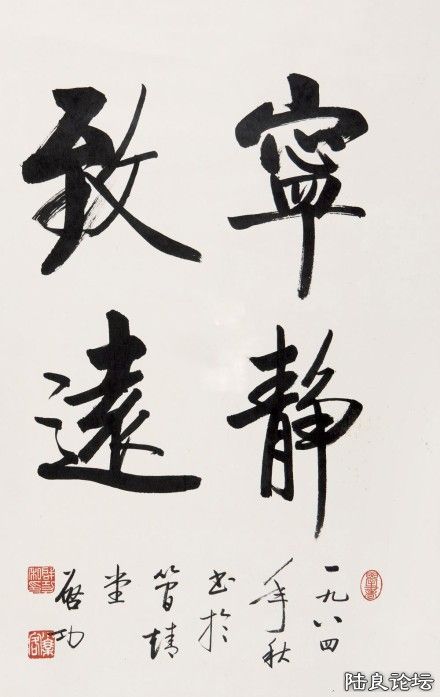 寧静
致遠
一九八四
年秋
书於
简靖
堂
啓功
陆良论坛